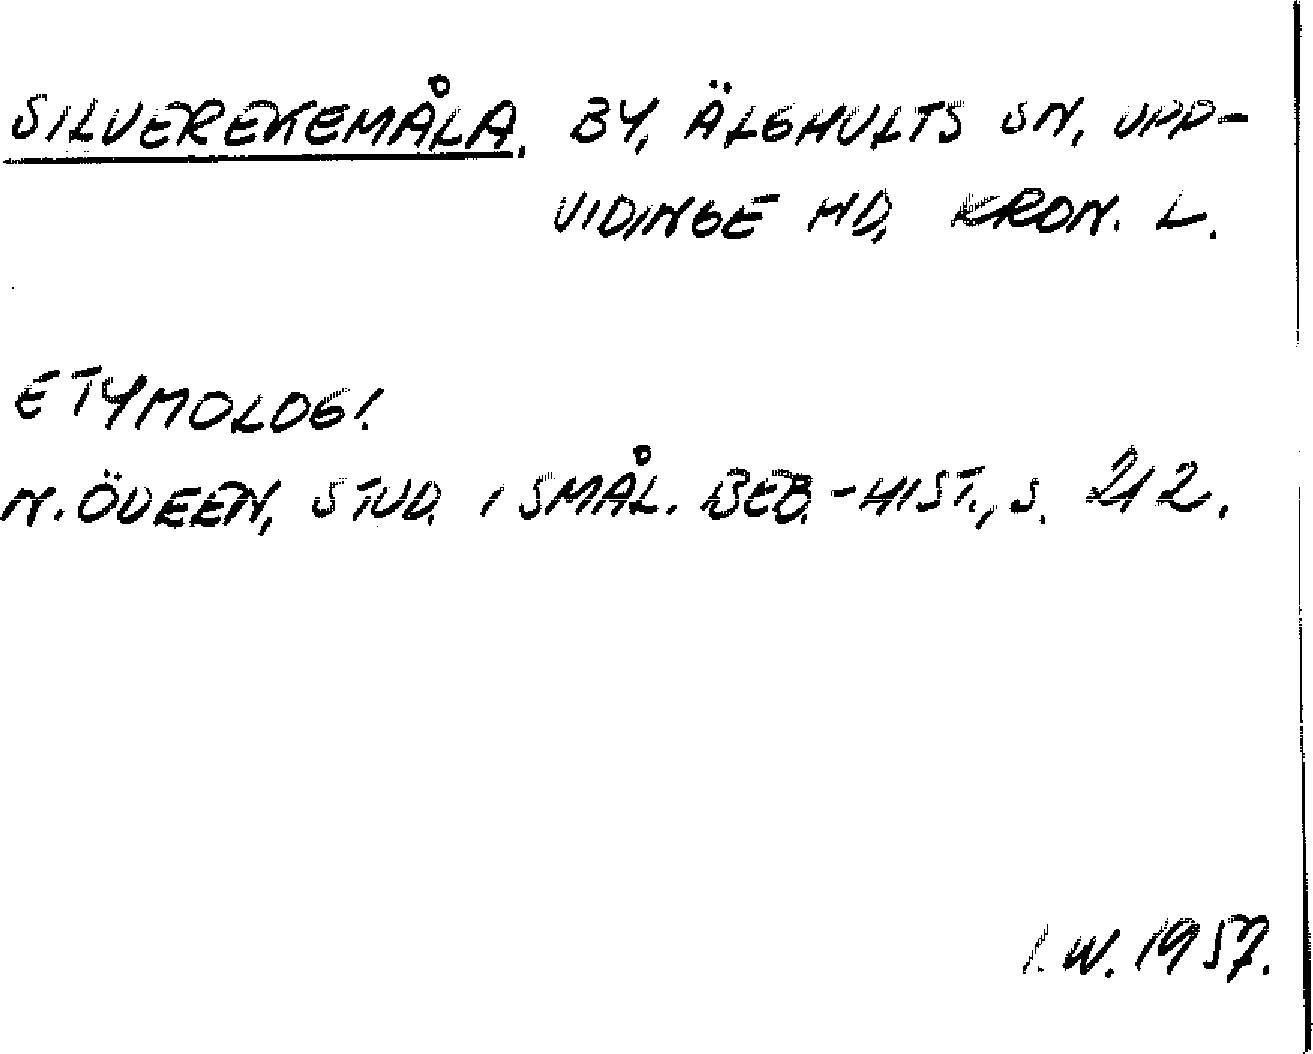 SILVEREKEMÅLA. BY, ÄLGHULTS SN, UPP-
VIDINGE HD, KRON. L.
ETYMOLOGI.
N. ÖDEEN, STUD. I SMÅL. BEB.-HIST., S. 212.
I. W. 1957.